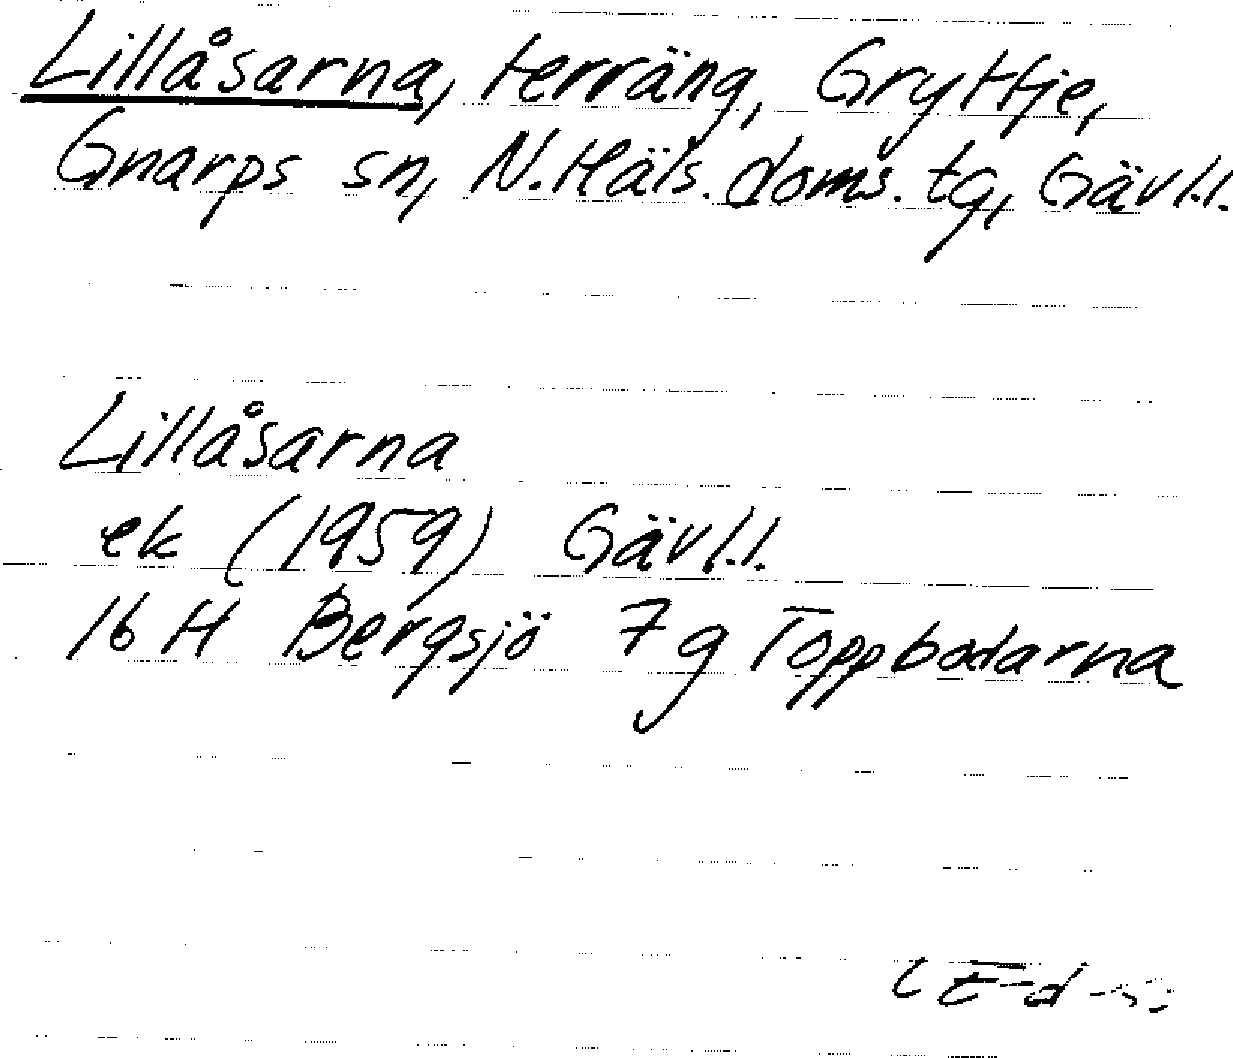 Lillåsarna, terräng, Gryttje,
Gnarps sn, N.Häls.doms.tg, Gävl.l.
Lillåsarna
ek (1959) Gävl.l.
16 H Bergsjö 7 g Toppbodarna